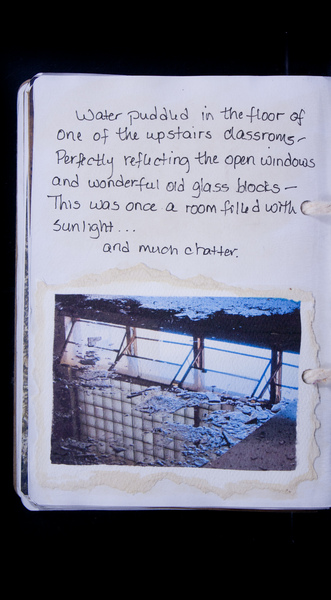 Water puddled in the floor of
one of the upstairs classrooms-
Perfectly reflecting the open windows
and wonderful old glass blocks-
This was once a room filled with
sunlight...
and much chatter.